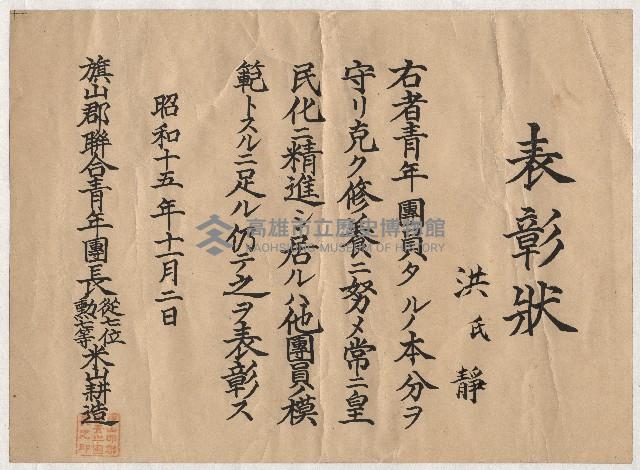 表彰狀
洪氏靜
右者青年團員タルノ本分ヲ
守リ克ク修養ニ努メ常ニ皇
民化ニ精進シ居ルハ他團員ノ模
範トスルニ足ル仍テ之ヲ表彰ス
昭和十五年十一月二日
旗山郡聯合青年團長從七位勳七等米山耕造
高雄市立歷史博物館
KAOHSIUNG MUSEUM OF HISTORY